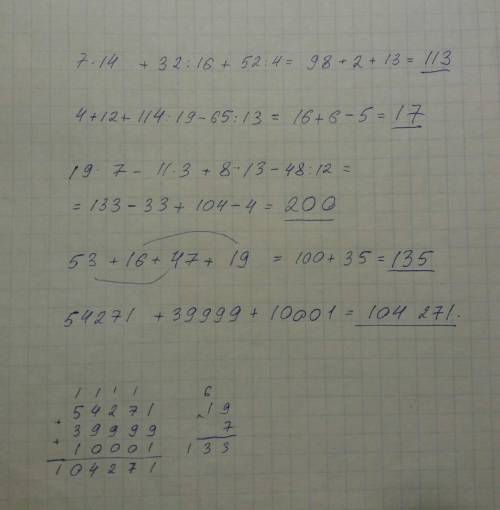 7·14 + 32:16 + 52:4 = 98 + 2 + 13 = 113
4+12+114:19-65:13 = 16+6-5 = 17
19·7 - 11·3 + 8·13 - 48:12 =
= 133 - 33 + 104 - 4 = 200
53 + 16 + 47 + 19 = 100 + 35 = 135
54271 + 39999 + 10001 = 104 271.
1 1 1 1
6
+ 54271
× 19
+ 39999
7
10001
133
104271